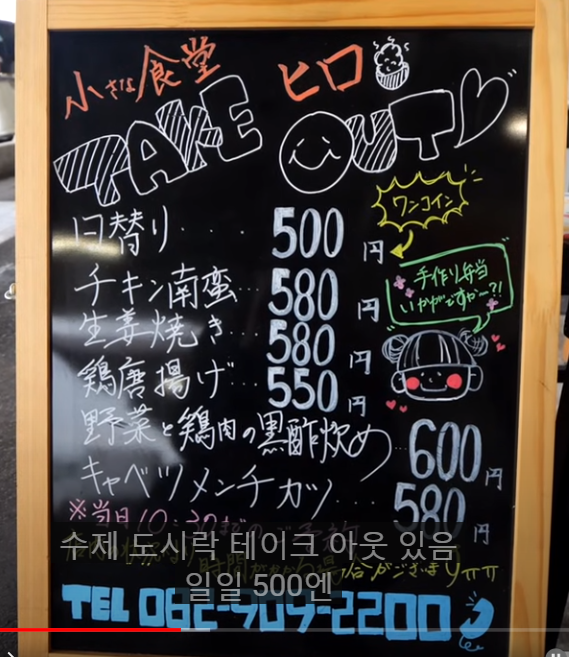 小さな食堂 ヒロ
TAKE OUT
ワンコイン
日替り・・・・500円
手作り弁当
いかがですかー?!
チキン南蛮・・580円
生姜焼き・・580円
鶏唐揚げ・・・550円
野菜と鶏肉の黒酢炒め・・600円
キャベツメンチカツ・・・・580円
※当日10:30までのご予約
時間がかかる場合がございますπ
수제 도시락 테이크 아웃 있음
일일 500엔
TEL 062-909-2200